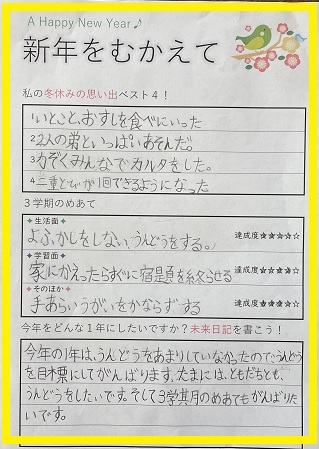 A Happy New Year♪
新年をむかえて
私の冬休みの思い出ベスト4！
1いとこと、おすしを食べにいった
2 2人の弟といっぱいあそんだ。
3かぞくみんなでカルタをした。
4二重とびが1回できるようになった
3学期のめあて
◆生活面◆
よふかしをしない、うんどうをする。 達成度☆☆☆☆☆
◆学習面◆
家にかえったらすぐに宿題を終らせる 達成度☆☆☆☆☆
◆そのほか◆
手あらいうがいをかならずする 達成度☆☆☆☆☆
今年をどんな1年にしたいですか？未来日記を書こう！
今年の1年は、うんどうをあまりしていなかったので、うんどう
を目標にしてがんばります。たまには、ともだちとも、
うんどうをしたいです。そして3学期のめあてもがんばりた
いです。